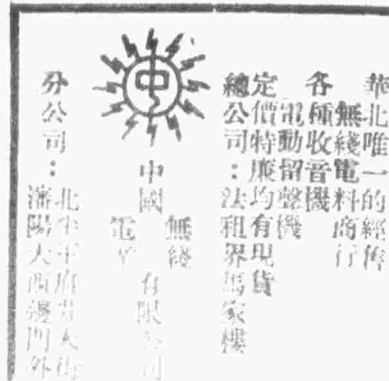 華北唯一的經售
無綫電料商行
各種收音機
電動留聲機
定價特廉均有現貨
總公司：法租界馬家樓
中
中國無綫電業有限公司
分公司：北平王府井大街
瀋陽大西邊門外